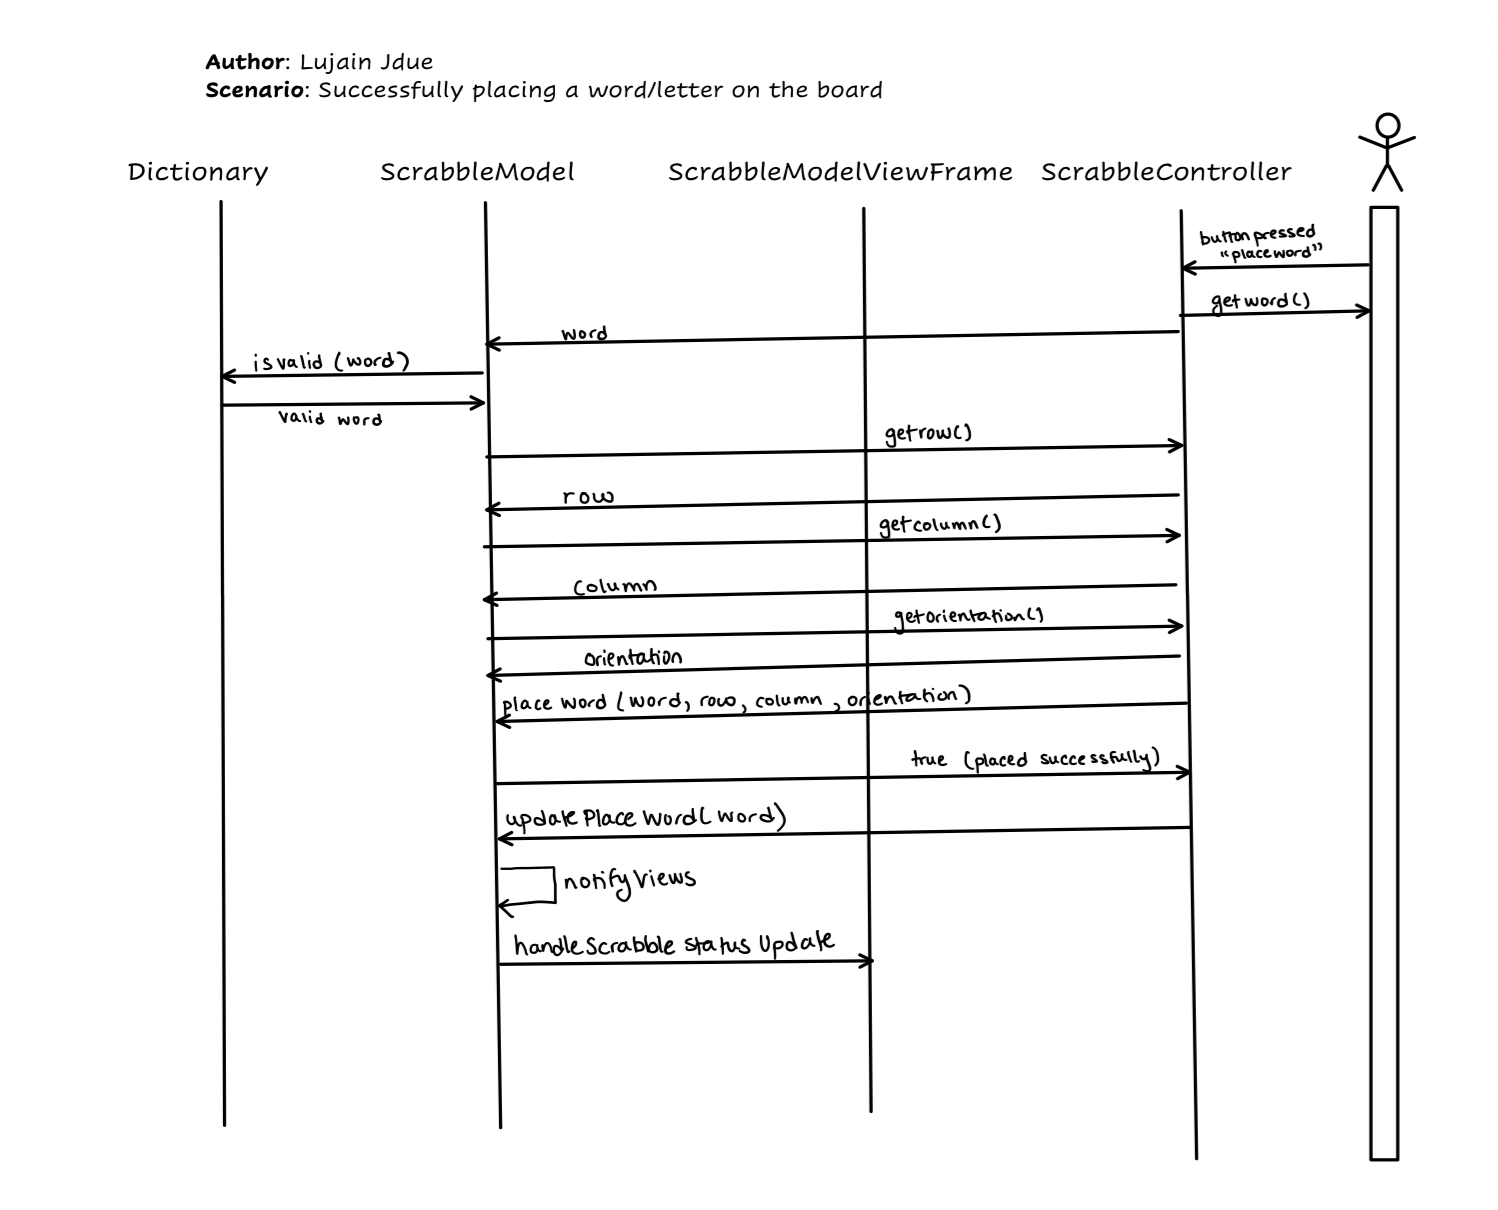 Author: Lujain Jdue
Scenario: Successfully placing a word/letter on the board
Dictionary
ScrabbleModel
ScrabbleModelViewFrame
ScrabbleController
button pressed
"place word"
getword()
word
isvalid (word)
valid word
getrow()
row
getcolumn()
column
getorientation()
orientation
place word (word, row, column, orientation)
true (placed successfully)
updatePlaceWord(word)
notifyViews
handleScrabble status Update